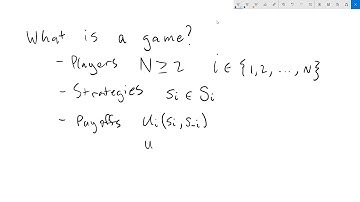 What is a game?
- Players N ≥ 2 i ∈ {1, 2, ..., N}
- Strategies sᵢ ∈ Sᵢ
- Payoffs uᵢ(sᵢ, s₋ᵢ)
u